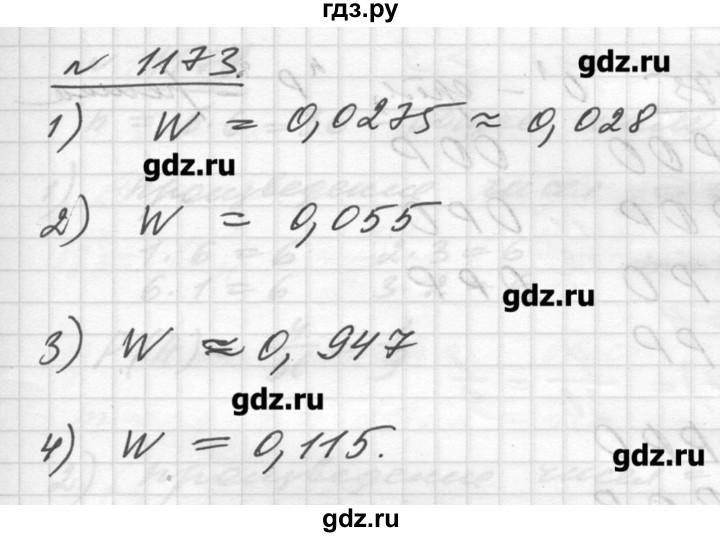 гдз.ру
№ 1173.
gdz.ru
1) W = 0,0275 ≈ 0,028
gdz.ru
2) W = 0,055
gdz.ru
3) W ≈ 0,947
gdz.ru
4) W = 0,115.
gdz.ru
gdz.ru